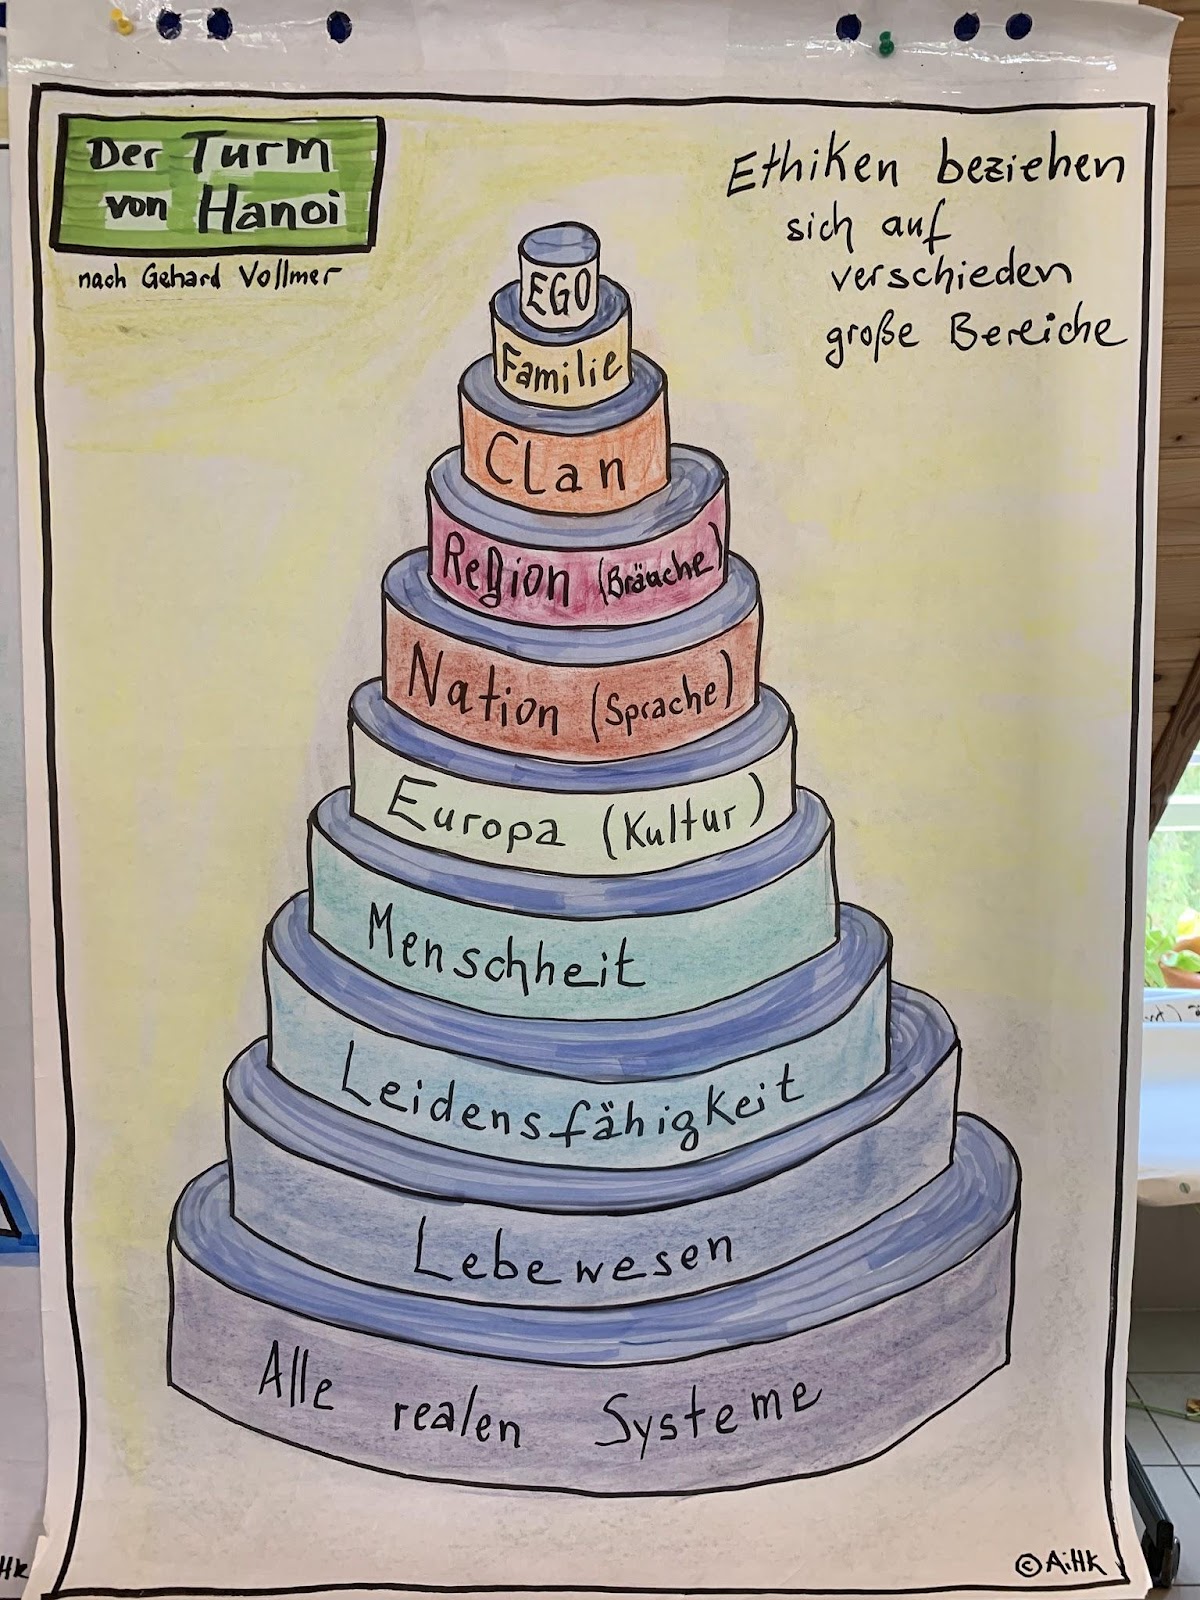 Der Turm
von Hanoi
nach Gehard Vollmer
Ethiken beziehen
sich auf
verschieden
große Bereiche
EGO
Familie
Clan
Region (Bräuche)
Nation (Sprache)
Europa (Kultur)
Menschheit
Leidensfähigkeit
Lebewesen
Alle realen Systeme
©AiHk